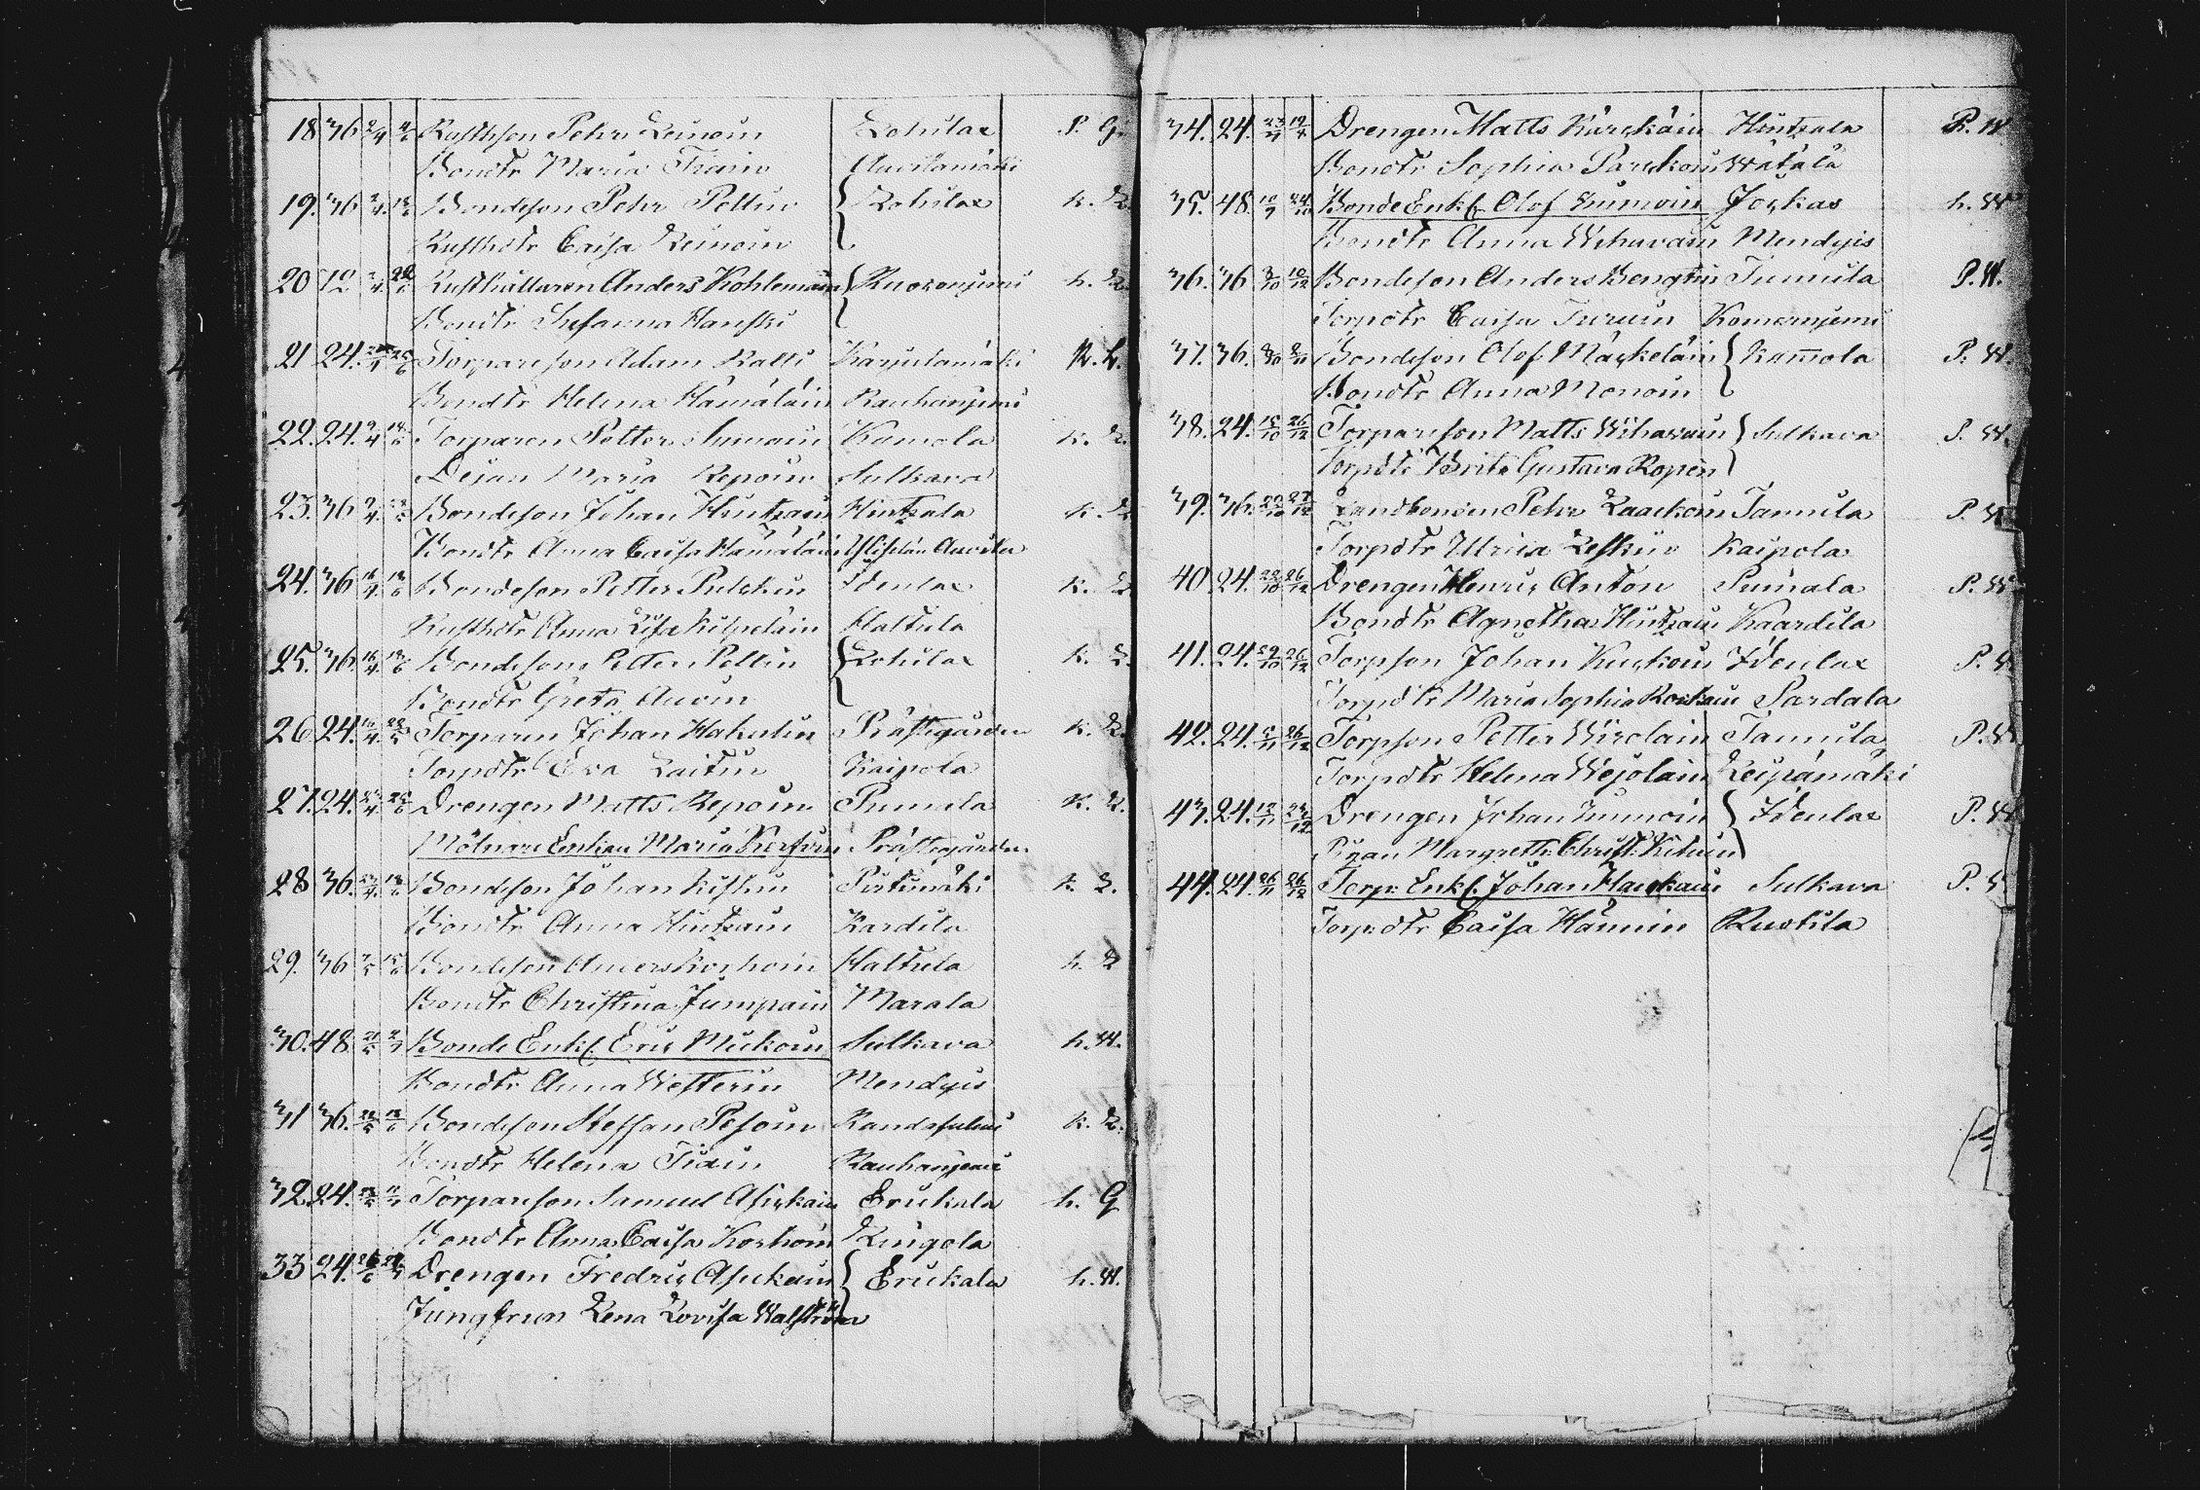 18 36 2/4 Rusthson Pehr Leinoin Lotulax P. G.
Bondtr Maria Train Auvilamäki
19. 36 2/4 Bondeson Pehr Peltin } Lotulax K. L.
Rusthdtr Caisa Leinoin
20 12 Rusthållaren Anders Kohlemain } Ruokonjemi h. L.
Bondtr Susanna Hanski
21 24. Torpareson Adam Kalli Karjulamäki K. L.
Bondtr Helena Hämäläin Rauhanjemi
22. 24. 9/4 Torparen Petter Immoin Kamola K. L.
Pejan Maria Repoin Sulkava
23. 36 9/4 Bondeson Johan Hintzain Hintzala K. L.
Bondtr Anna Caisa Hämäläin Auvila
24. 36 16/4 Bondeson Petter Pulckin Idenlax K. L.
Rusthdtr Anna Lisa Kilpeläin Haltula
25. 36 16/4 Bondeson Petter Peltin } Lotulax K. L.
Bondtr Greta Auvin
26 24. 16/4 Torparen Johan Hakulin Prästegården K. L.
Torpdtr Eva Laitin Kaipola
27. 24. Drengen Matts Repoin Pumula K. L.
Mölnare Enkan Maria Prästegården
28 36. Bondeson Johan Kistin Pirtimäki K. L.
Bondtr Anna Hintzain Kardila
29. 36 Bondeson Anders Korhoin Haltula h. L
Bondtr Christina Jumpain Marala
30. 48. Bonde Enkl. Eric Mickoin Sulkava h. W.
Bondtr Anna Westerin Mendyis
31 36. Bondeson Steffan Pesoin Randasalmi K. L.
Bondtr Helena Tiain Rauhanjemi
32. 24. Torpareson Samuel Asickain Erickala h. G
Bondtr Anna Caisa Korhoin Ringola
33 24. Drengen Fredric Asickain } Erickala h. W.
Jungfrun Lena Lovisa Walström
34. 24. 23/9 Drengen Matts Kärckäin Hintzala P. W
Bondtr Sophia Parckoin Wätälä
35. 48. 10/9 24/10 Bonde Enkl. Olof Immoin Jockas h. W
Bondtr Anna Wihavain Mendyis
36. 36 8/10 10/12 Bondeson Anders Bengtin Tammila P. W.
Torpdtr Caisa Turuin Komernjemi
37. 36. Bondeson Olof Mäckeläin } Kam̄ola P. W.
Bondtr Anna Monoin
38. 24. 15/10 26/12 Torpareson Matts Wihavain } Sulkava P. W.
Torpdtr Brita Gustava Ropen
39. 36. 22/10 27/12 Landbonden Pehr Laackoin Tammila P. W
Torpdtr Ulrica Leskin Kaipola
40. 24. 22/10 26/12 Drengen Henric Anton Sumala P. W
Bondtr Agnetha Hintzain Kaardila
41. 24. 29/10 26/12 Torpson Johan Kuckoin Idenlax P. W
Torpdtr Maria Sophia Sardala
42. 24. 26/12 Torpson Petter Wirolain Tammila P. W
Torpdtr Helena Wejolain Leipämäki
43. 24. Drengen Johan Immoin } Idenlax P. W
Pigan Margretha Christ. Kitwin
44. 24. 26/11 26/12 Torp: Enkl. Johan Hauckain Sulkava P. W
Torpdtr Caisa Hännin Ruokila